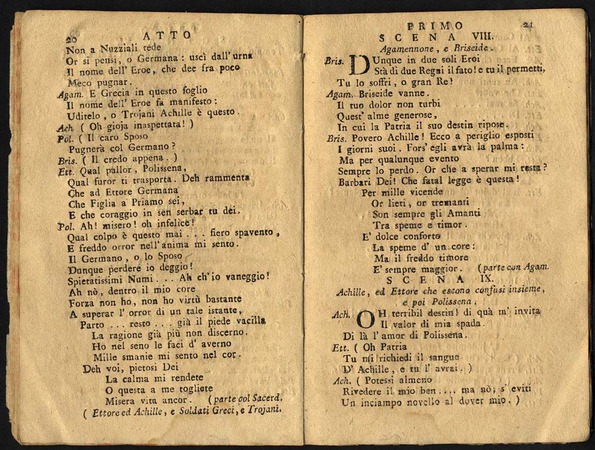 20 ATTO
Non a Nuzziali tede
Or si pensi, o Germana: uscì dall'urna
Il nome dell'Eroe, che dee fra poco
Meco pugnar.
Agam. E Grecia in questo foglio
Il nome dell'Eroe fa manifesto:
Uditelo, o Trojani Achille è questo.
Ach ( Oh gioja inaspettata! )
Pol. ( Il caro Sposo
Pugnerà col Germano?
Bris. ( Il credo appena. )
Ett. Qual pallor, Polissena,
Qual furor ti trasporta. Deh rammenta
Che ad Ettore Germana
Che Figlia a Priamo sei,
E che coraggio in sen serbar tu dei.
Pol. Ah! misero! oh infelice!
Qual colpo è questo mai ... fiero spavento,
E freddo orror nell'anima mi sento.
Il Germano, o lo Sposo
Dunque perdere io deggio!
Spietatissimi Numi.... Ah ch'io vaneggio!
Ah nò, dentro il mio core
Forza non ho, non ho virtù bastante
A superar l'orror di un tale istante,
Parto ... resto ... già il piede vacilla
La ragione già più non discerno.
Ho nel seno le faci d'averno
Mille smanie mi sento nel cor.
Deh voi, pietosi Dei
La calma mi rendete
O questa a me togliete
Misera vita ancor. (parte col Sacerd.
( Ettore ed Achille, e Soldati Greci, e Trojani.
PRIMO 21
SCENA VIII.
Agamennone, e Briseide.
Bris. Dunque in due soli Eroi
Stà di due Regni il fato! e tu il permetti,
Tu lo soffri, o gran Re!
Agam. Briseide vanne.
Il tuo dolor non turbi
Quest'alme generose,
In cui la Patria il suo destin ripose.
Bris. Povero Achille! Ecco a periglio esposti
I giorni suoi. Fors'egli avrà la palma:
Ma per qualunque evento
Sempre lo perdo. Or che a sperar mi resta?
Barbari Dei! Che fatal legge è questa!
Per mille vicende
Or lieti, or tremanti
Son sempre gli Amanti
Tra speme e timor.
E' dolce conforto
La speme d'un core:
Ma il freddo timore
E' sempre maggior. (parte con Agam.
SCENA IX.
Achille, ed Ettore che escono confusi insieme,
e poi Polissena.
Ach. OH terribil destin! di quà m'invita
Il valor di mia spada
Di là l'amor di Polissena.
Ett. ( Oh Patria
Tu mi richiedi il sangue
D'Achille, e tu l'avrai. )
Ach. ( Potessi almeno
Rivedere il mio ben.... ma nò; s'eviti
Un inciampo novello al dover mio. )